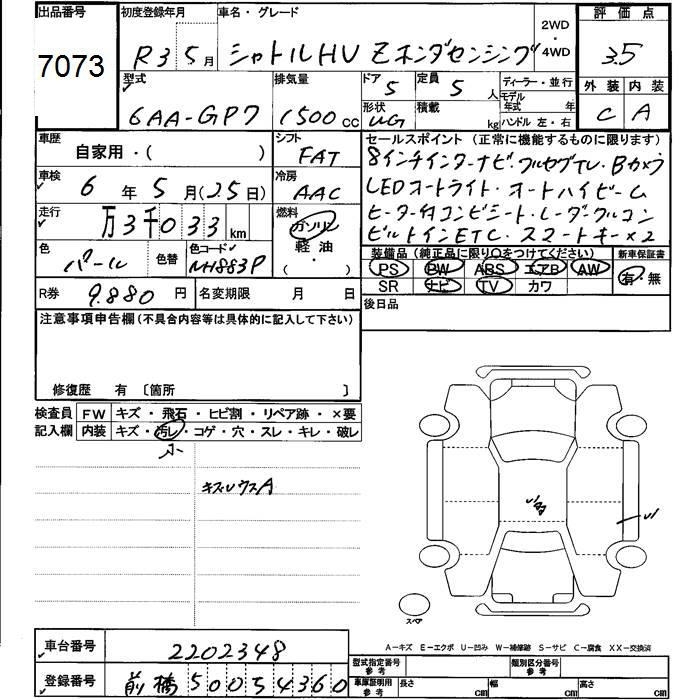 出品番号
7073
初度登録年月
R3 5月
車名・グレード
シャトルHV Zホンダセンシング
2WD・4WD
評価点
3.5
型式
6AA-GP7
排気量
1500cc
ドア 5
定員 5人
形状 UG
積載 kg
ディーラー・並行
モデル年式 年
ハンドル 左・右
外装 内装
C A
車歴
自家用・( )
シフト
FAT
車検
6年5月(25日)
冷房
AAC
走行
万3千033km
燃料
ガソリン
軽油
( ・ )
色
パール
色替
色コード
NH883P
R券 9.880円
名変期限 月 日
セールスポイント (正常に機能するものに限ります)
8インチインターナビ・フルセグTV・Bカメラ
LEDオートライト・オートハイビーム
ヒーター付コンビシート・レーダークルコン
ビルトインETC・スマートキー×2
装備品 (純正品に限り○をつけてください)
PS PW ABS エアB AW
SR ナビ TV カワ
新車保証書
有・無
後日品
注意事項申告欄(不具合内容等は具体的に記入して下さい)
修復歴 有 〔箇所 〕
検査員記入欄
FW キズ・飛石・ヒビ割・リペア跡・×要
内装 キズ・汚レ・コゲ・穴・スレ・キレ・破レ
小
キズUウスA
スペア
A-キズ E-エクボ U-凹み W-補修跡 S-サビ C-腐食 XX-交換済
車台番号
2202348
登録番号
前橋 50054360
型式指定番号 参考
類別区分番号 参考
車庫証明用 参考
長さ cm
幅 cm
高さ cm